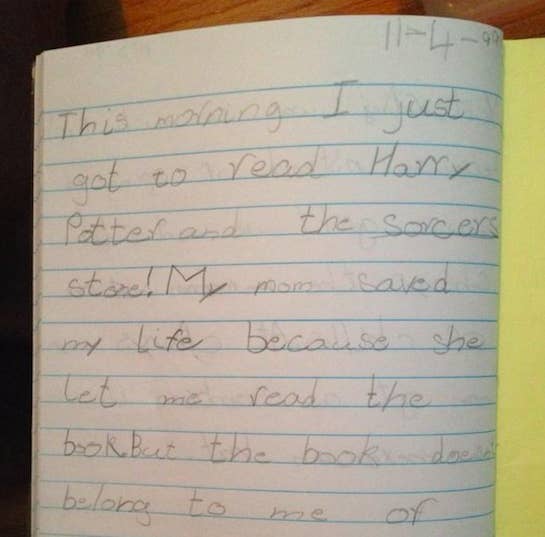 11-4-99
This morning I just
got to read Harry
Potter and the Sorcers
stone! My mom saved
my life because she
let me read the
book. But the book doesn't
belong to me of